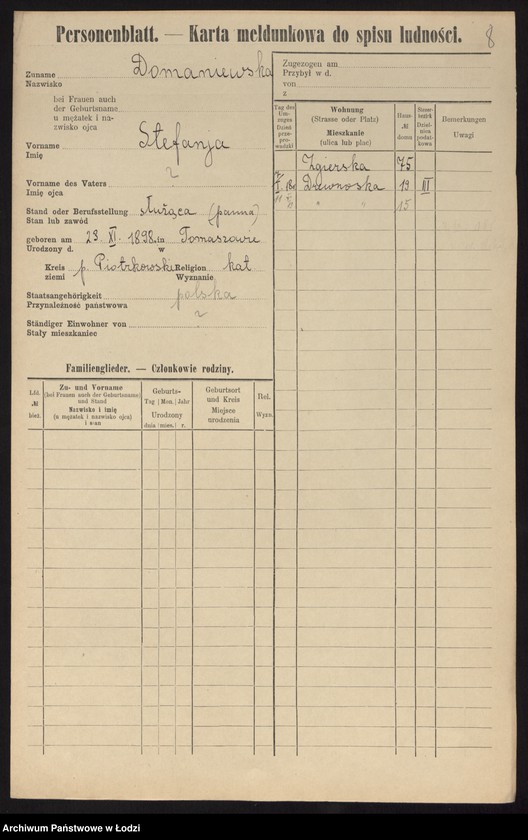 Personenblatt. — Karta meldunkowa do spisu ludności.
8
Zuname Domaniewska
Nazwisko
bei Frauen auch
der Geburtsname
u mężatek i na-
zwisko ojca
Vorname Stefanja
Imię
Vorname des Vaters ?
Imię ojca
Stand oder Berufsstellung służąca (panna)
Stan lub zawód
geboren am 23. XI. 1898. in Tomaszowie
Urodzony d. w
Kreis p. Piotrkowski Religion kat
ziemi Wyznanie
Staatsangehörigkeit polska
Przynależność państwowa
Ständiger Einwohner von ?
Stały mieszkaniec
Zugezogen am
Przybył w d.
von
z
Tag des Um-zuges Dzień prze-prowadzki
Wohnung (Strasse oder Platz) Mieszkanie (ulica lub plac)
Haus- № domu
Dzielnica podatkowa
Bemerkungen Uwagi
Zgierska 75
Drewnoska 19 III
" " 15
Familienglieder. — Członkowie rodziny.
Lfd. № bież.
Zu- und Vorname (bei Frauen auch der Geburtsname) und Stand Nazwisko i imię (u mężatek i nazwisko ojca) i stan
Geburts- Tag Mon. Jahr Urodzony dnia mies. r.
Geburtsort und Kreis Miejsce urodzenia
Rel. Wyzn.
Archiwum Państwowe w Łodzi